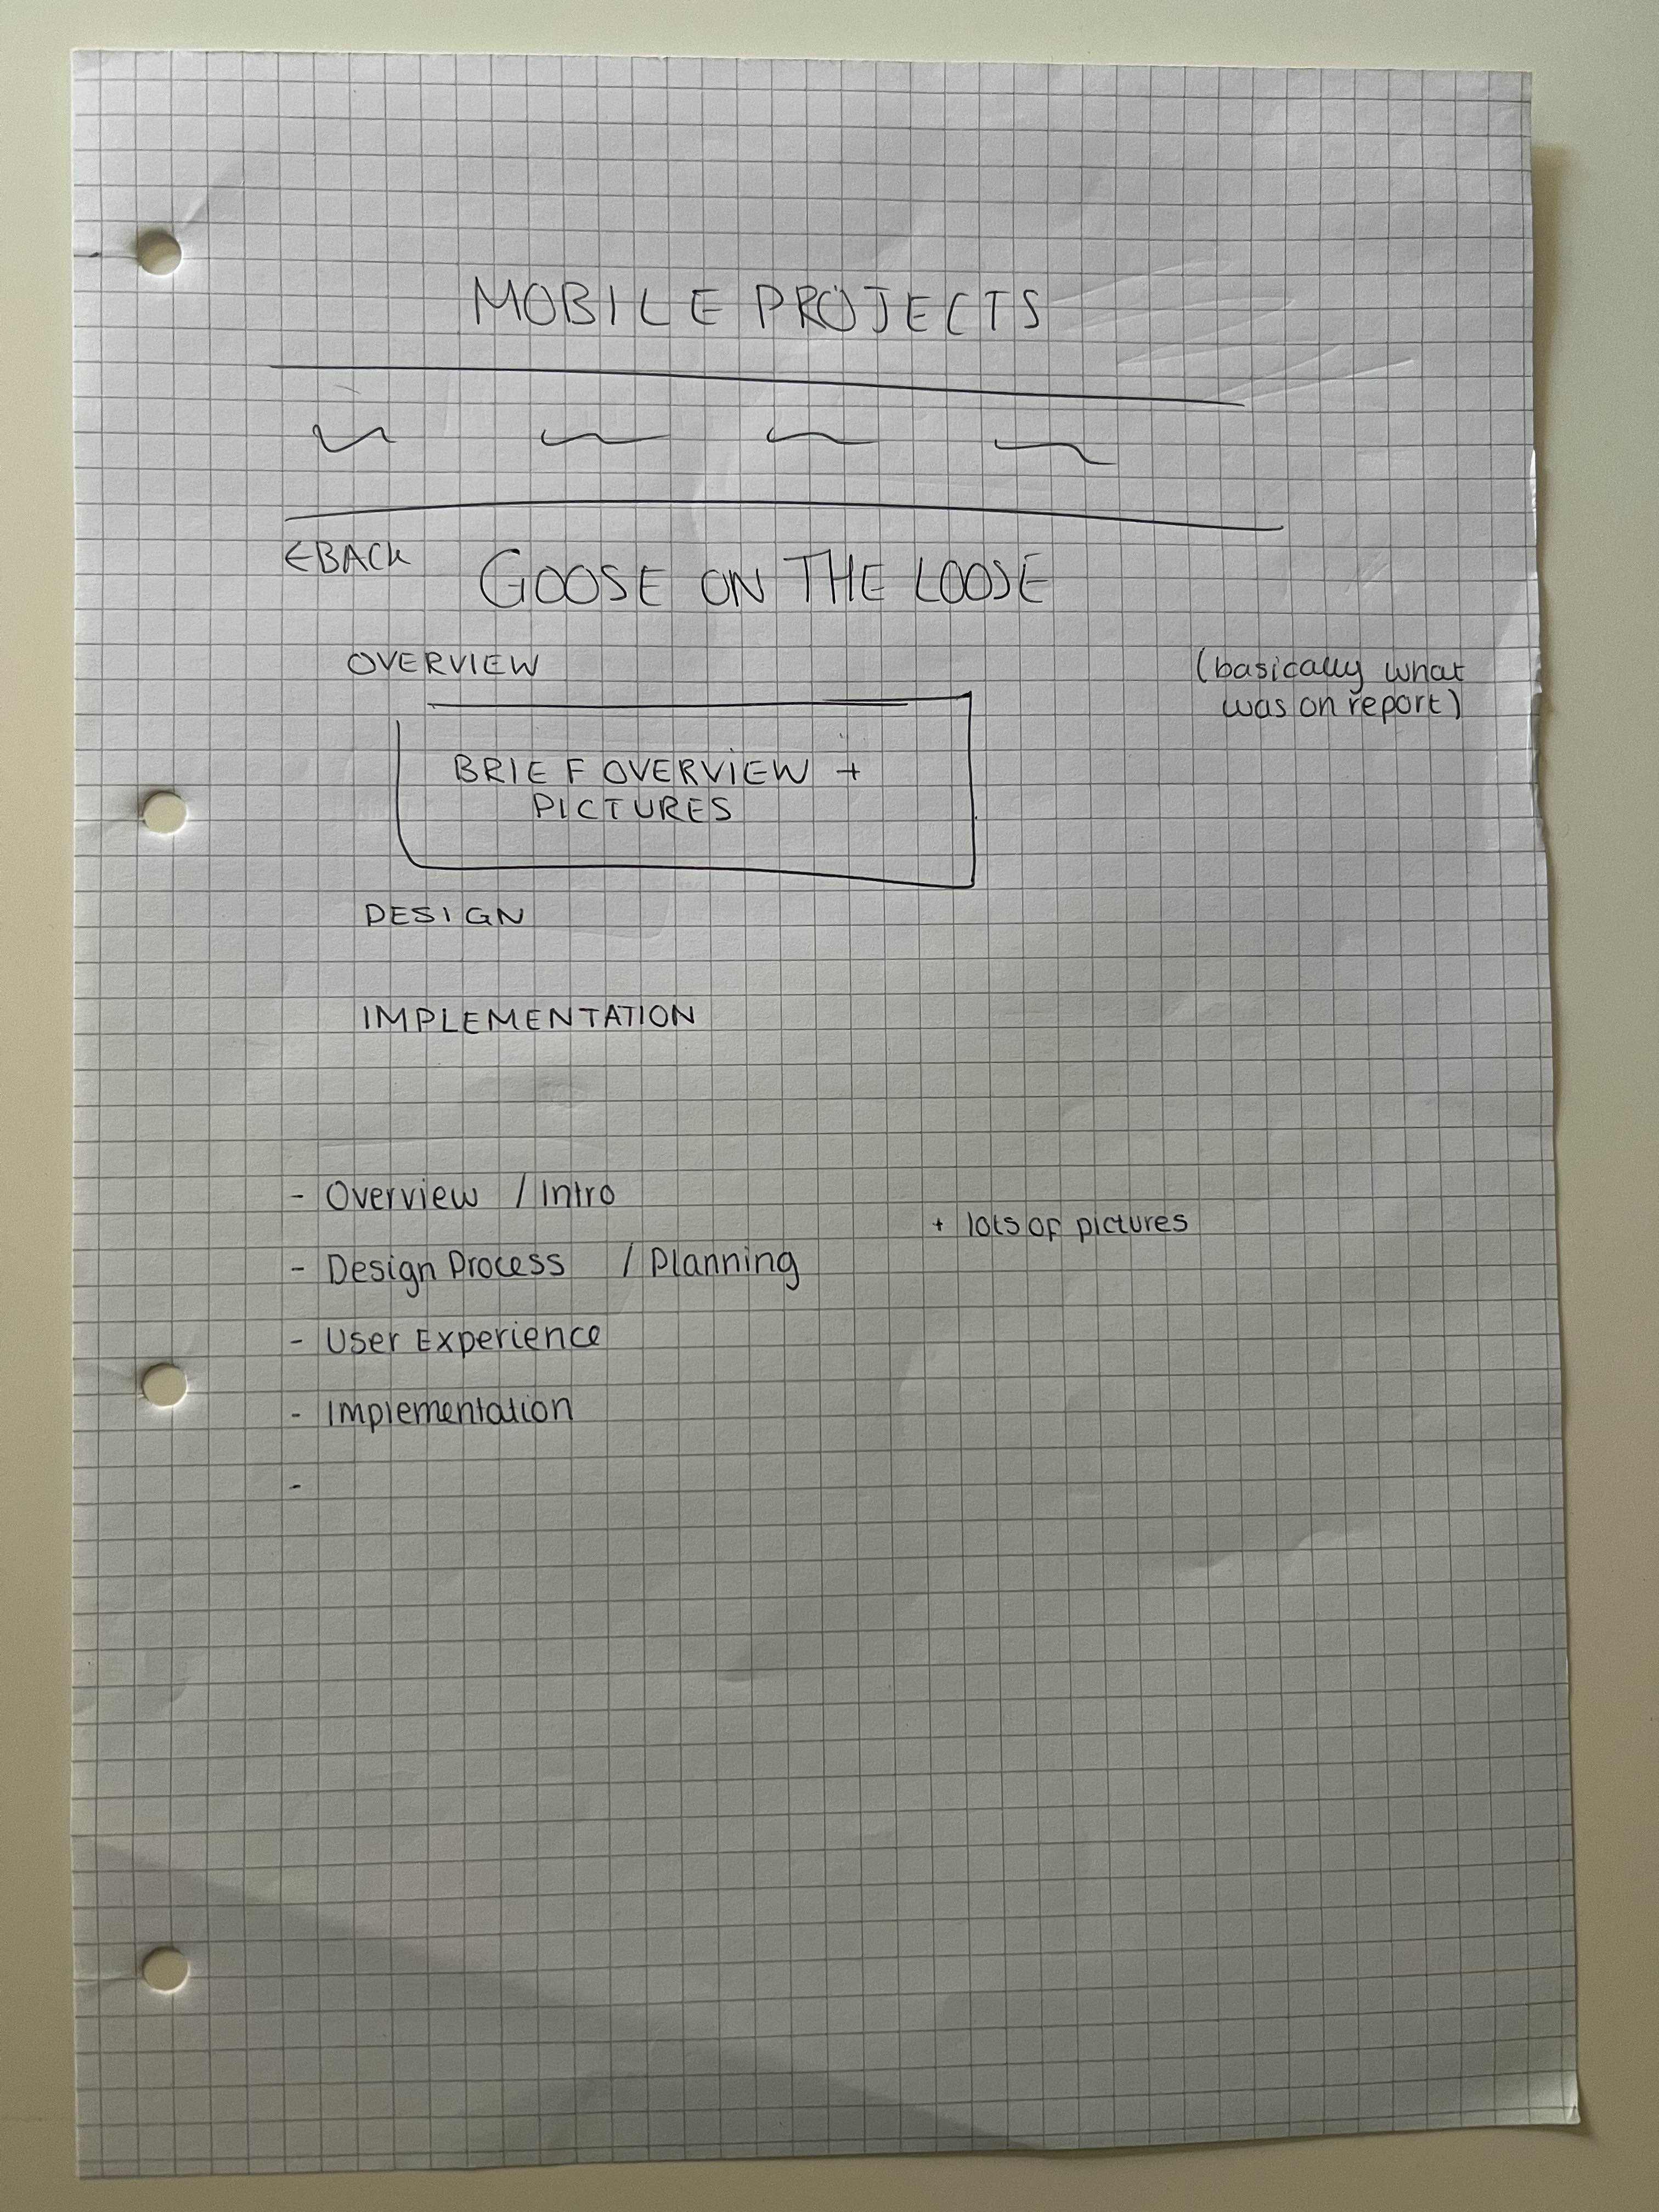 MOBILE PROJECTS
←BACK
GOOSE ON THE LOOSE
OVERVIEW
(basically what
was on report)
BRIEF OVERVIEW +
PICTURES
DESIGN
IMPLEMENTATION
- Overview / Intro
+ lots of pictures
- Design Process / Planning
- User Experience
- Implementation
-